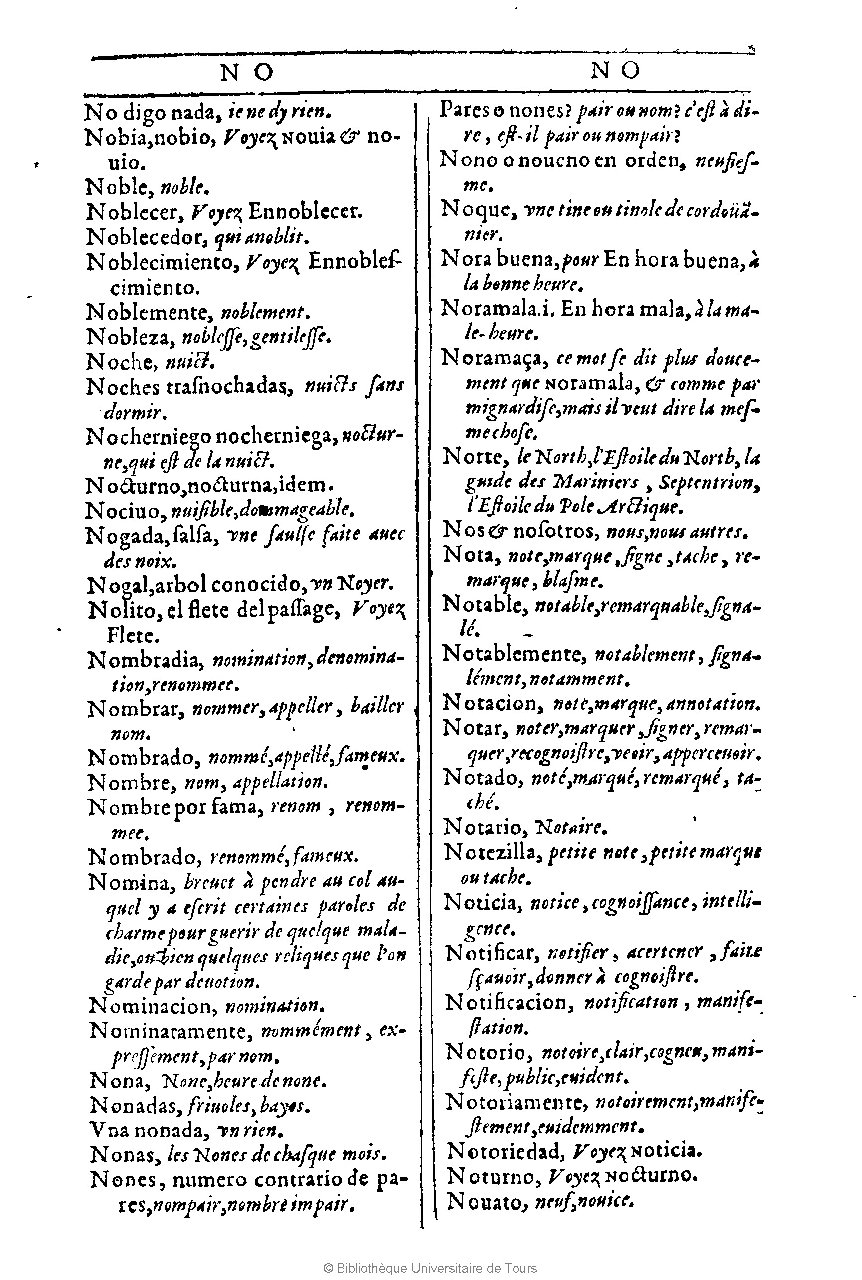 N O
No digo nada, ie ne dy rien.
Nobia,nobio, Voyez Nouia & no-
uio.
Noble, noble.
Noblecer, Voyez Ennoblecer.
Noblecedor, qui anoblit.
Noblecimiento, Voyez Ennobleſ-
cimiento.
Noblemente, noblement.
Nobleza, nobleſſe,gentileſſe.
Noche, nuict.
Noches traſnochadas, nuicts ſans
dormir.
Nocherniego nocherniega, noctur-
ne,qui eſt de la nuict.
Nocturno,nocturna,idem.
Nociuo, nuiſible,dommageable.
Nogada,ſalſa, vne ſaulſe faite auec
des noix.
Nogal,arbol conocido, vn Noyer.
Nolito, el flete del paſſage, Voyez
Flete.
Nombradia, nomination,denomina-
tion,renommee.
Nombrar, nommer,appeller, bailler
nom.
Nombrado, nommé,appellé,fameux.
Nombre, nom, appellation.
Nombre por fama, renom , renom-
mee.
Nombrado, renommé,fameux.
Nomina, breuet à pendre au col au-
quel y a eſcrit certaines paroles de
charme pour guerir de quelque mala-
die,ou bien quelques reliques que l'on
garde par deuotion.
Nominacion, nomination.
Nominaramente, nommément, ex-
preſſément,par nom.
Nona, None,heure de none.
Nonadas, friuoles,bayes.
Vna nonada, vn rien.
Nonas, les Nones de chaſque mois.
Nones, numero contrario de pa-
res,nompair,nombre impair.
N O
Pares o nones? pair ou nom? c'eſt à di-
re, eſt-il pair ou nompair?
Nono o noueno en orden, neufieſ-
me.
Noque, vne tine ou tinole de cordoüa-
nier.
Nora buena,pour En hora buena,à
la bonne heure.
Noramala.i. En hora mala,à la ma-
le-heure.
Noramaça, ce mot ſe dit plus douce-
ment que Noramala, & comme par
mignardiſe,mais il veut dire la meſ-
me choſe.
Norte, le North,l'Eſtoile du North,la
guide des Mariniers , Septentrion,
l'Eſtoile du Pole Arctique.
Nos & noſotros, nous,nous autres.
Nota, note,marque,ſigne,tache, re-
marque, blaſme.
Notable, notable,remarquable,ſigna-
lé.
Notablemente, notablement, ſigna-
lément,notamment.
Notacion, note,marque,annotation.
Notar, noter,marquer,ſigner,remar-
quer,recognoiſtre,veoir,apperceuoir.
Notado, noté,marqué,remarqué, ta-
ché.
Notario, Notaire.
Notezilla, petite note,petite marque
ou tache.
Noticia, notice,cognoiſſance,intelli-
gence.
Notificar, notifier, acertener,faire
ſçauoir,donner à cognoiſtre.
Notificacion, notification, manife-
ſtation.
Notorio, notoire,clair,cogneu,mani-
feſte,public,euident.
Notoriamente, notoirement,manife-
ſtement,euidemment.
Notoriedad, Voyez Noticia.
Noturno, Voyez Nocturno.
Nouato, neuf,nouice.
© Bibliothèque Universitaire de Tours